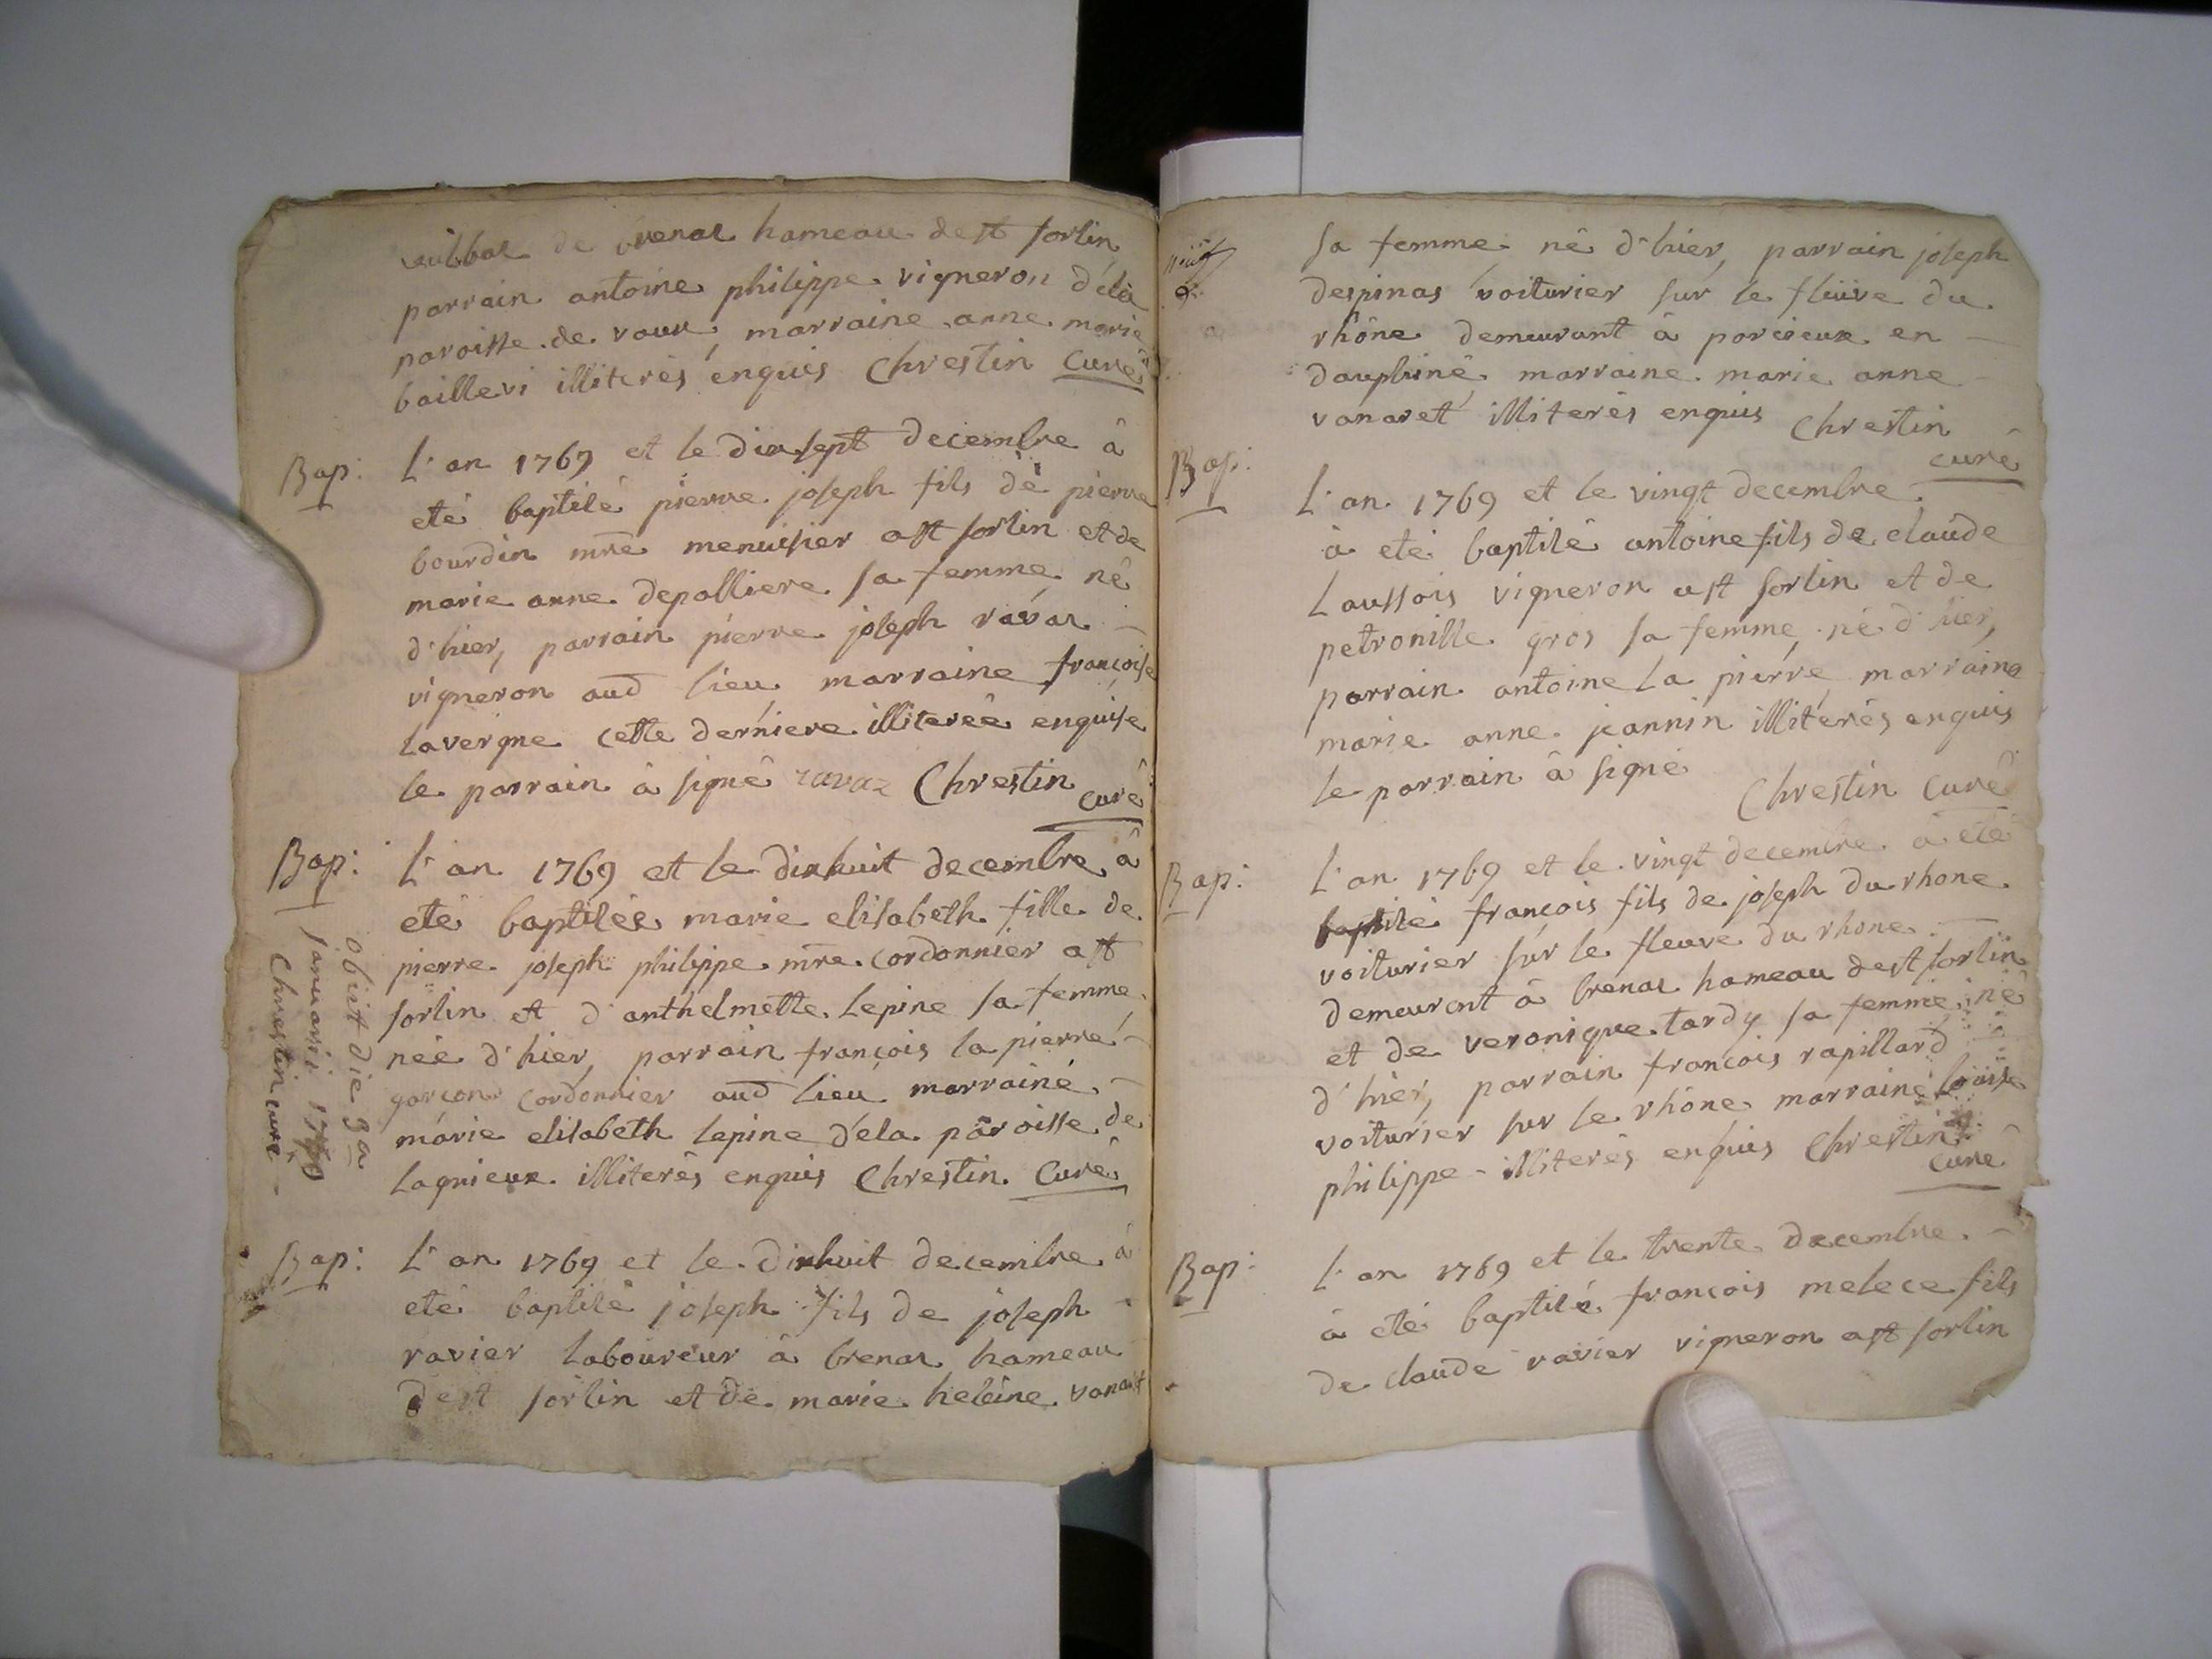 de brenaz hameau de st sorlin,
parrain antoine philippe vigneron déla
paroisse de vaux, marraine anne marie
baillevi illiterés enquis Chrestin Curé
Bap: L'an 1769 et le dixsept decembre â
eté baptisé pierre joseph fils dè pierre
bourdin mre menuisier a st sorlin et de
marie anne depolliere sa femme né
d'hier, parrain pierre joseph ravaz
vigneron aud lieu, marraine françoise
lavergne cette derniere illiterée enquise
le parrain à signé ravaz Chrestin
curé
Bap: L'an 1769 et le dixhuit decembre â
eté baptisée marie elisabeth fille de
pierre joseph philippe mre cordonnier a st
sorlin et d'anthelmette lepine sa femme,
née d'hier, parrain françois la pierre
garçon cordonnier aud lieu marraine
marie elisabeth lepine déla paroisse de
lagnieux illiterés enquis Chrestin Curé
obiit die 3a
januarii 1770
Chrestin curé
Bap: L'an 1769 et le dixhuit decembre à
eté baptisé joseph fils de joseph
ravier laboureur à brenaz hameau
de st sorlin et de marie heleine vanaret
sa femme né d'hier, parrain joseph
despinas voiturier sur le fleüve du
rhône demeurant à porcieux en
dauphiné marraine marie anne
vanaret illiterés enquis Chrestin
curé
Bap: L'an 1769 et le vingt decembre
à eté baptisé antoine fils de claude
Laussois vigneron a st sorlin et de
petronille gros sa femme, né d'hier,
parrain antoine la pierre marraine
marie anne jeannin illiterés enquis
le parrain à signé Chrestin Curé
Bap: L'an 1769 et le vingt decembre à eté
baptisé françois fils de joseph du rhone
voiturier sur le fleuve du rhone
demeurant à brenaz hameau de st sorlin
et de veronique tardy sa femme, né
d'hier, parrain françois rapillard
voiturier sur le rhône marraine loüise
philippe illiterés enquis Chrestin
curé
Bap: L'an 1769 et le trente decembre
à eté baptisé françois melece fils
de claude ravier vigneron a st sorlin